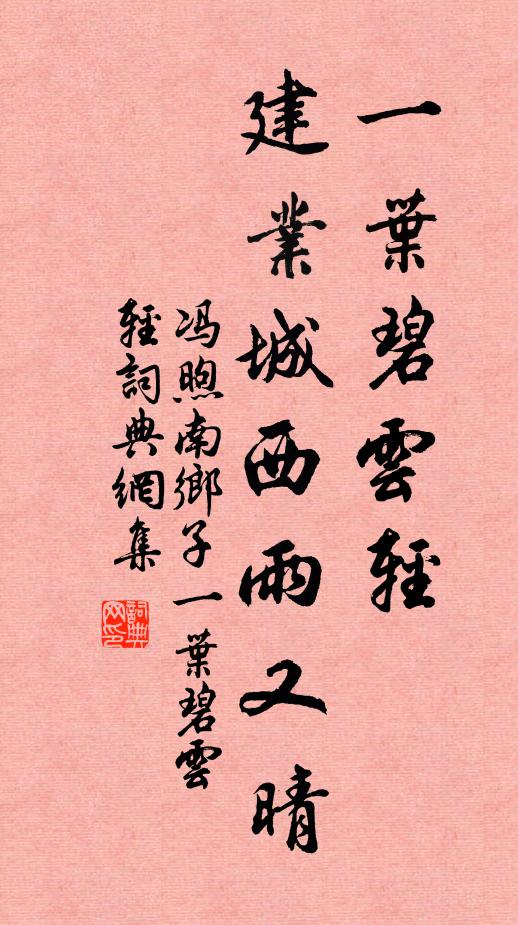 一葉碧雲輕
建業城西雨又晴
冯煦南鄉子一葉碧雲
輕詞典網集
詞典网印